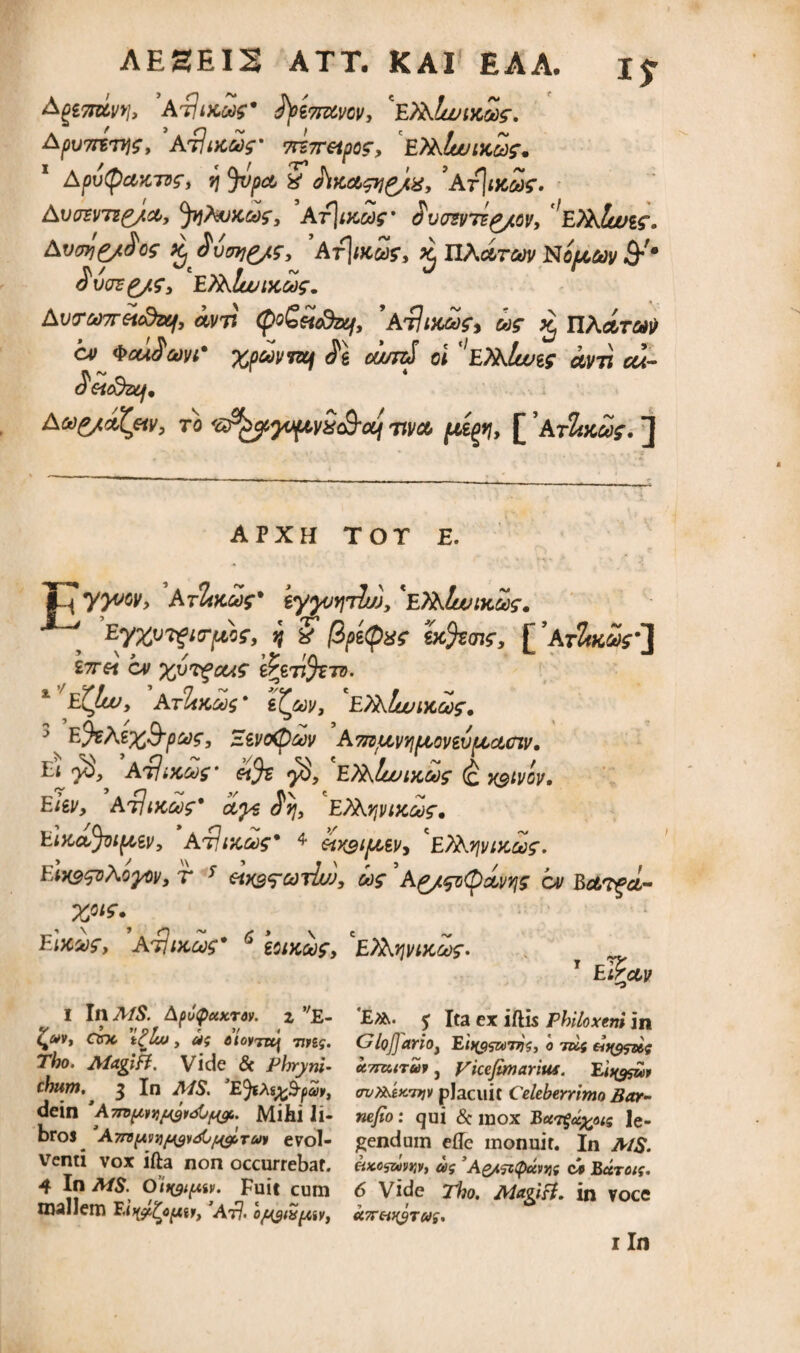 ΛΕΞΕΙΣ ΑΤΤ. ΚΑΙ ΕΛΛ. 15
Δρεπάνη, Ἀττικῶς· δρέπανον, Ἑλληνικῶς.
Δρυπετὴς, Ἀττικῶς· πέπειρος, Ἑλληνικῶς.
¹ Δρύφακτος, ἡ θύρα τῦ δικαστηρίȣ, Ἀττικῶς.
Δυσεντερία, θηλυκῶς, Ἀττικῶς· δυσεντέριον, Ἕλληνες.
Δυσήριδος καὶ δύσηρις, Ἀττικῶς, καὶ Πλάτων Νόμων θʹ·
δύσερις, Ἑλληνικῶς.
Δυσωπεῖσθαι, ἀντὶ φοβεῖσθαι, Ἀττικῶς, ὡς καὶ Πλάτων
ἐν Φαίδωνι· χρῶνται δὲ αὐτῷ οἱ Ἕλληνες ἀντὶ αἰ-
δεῖσθαι.
Δωριάζειν, τὸ παραγυμνȣ͂σθαί τινα μέρη, [Ἀττικῶς.]
ΑΡΧΗ ΤΟΥ Ε.
Ἔγγυον, Ἀττικῶς· ἐγγυητὴν, Ἑλληνικῶς.
Ἐγχυτρισμὸς, ἡ τȣ͂ βρέφȣς ἔκθεσις, [Ἀττικῶς·]
ἐπεὶ ἐν χύτραις ἐξετίθετο.
² Ἔζην, Ἀττικῶς· ἔζων, Ἑλληνικῶς.
³ Ἐθελέχθρως, Ξενοφῶν Ἀπομνημονεύμασιν.
Εἰ γὰρ, Ἀττικῶς· εἴθε γὰρ, Ἑλληνικῶς καὶ κοινόν.
Εἶεν, Ἀττικῶς· ἄγε δὴ, Ἑλληνικῶς.
Εἰκάθοιμεν, Ἀττικῶς· ⁴ εἴκοιμεν, Ἑλληνικῶς.
Εἰκοστολόγον, τὸν ⁵ εἰκοστώτην, ὡς Ἀριστοφάνης ἐν Βατρά-
χοις.
Εἰκὼς, Ἀττικῶς· ⁶ ἐοικὼς, Ἑλληνικῶς.
¹ Εἶξαν
1 In MS. Δρύφακτον. 2 Ἔ-
ζων, οὐκ ἔζην, ὡς οἴονταί τινες.
Tho. Magist. Vide & Phryni-
chum. 3 In MS. Ἐθελεχθρῶν,
dein Ἀπομνημονεύμα. Mihi li-
bros Ἀπομνημονευμάτων evol-
venti vox ista non occurrebat.
4 In MS. Οἴκοιμεν. Fuit cum
mallem Εἰκάζομεν, Ἀττ. ὁμοιȣ͂μεν,
Ἑλλ. 5 Ita ex istis Philoxeni in
Glossario, Εἰκοστώτης, ὁ τὰς εἰκοστὰς
ἀπαιτῶν, Vicesimarius. Εἰκοστῶν
συλλέκτην placuit Celeberrimo Bar-
nesio: qui & mox Βατράχοις le-
gendum esse monuit. In MS.
εἰκοστώνην, ὡς Ἀριστοφάνης ἐν Βάτοις.
6 Vide Tho. Magist. in voce
ἀπεικότως.
1 In